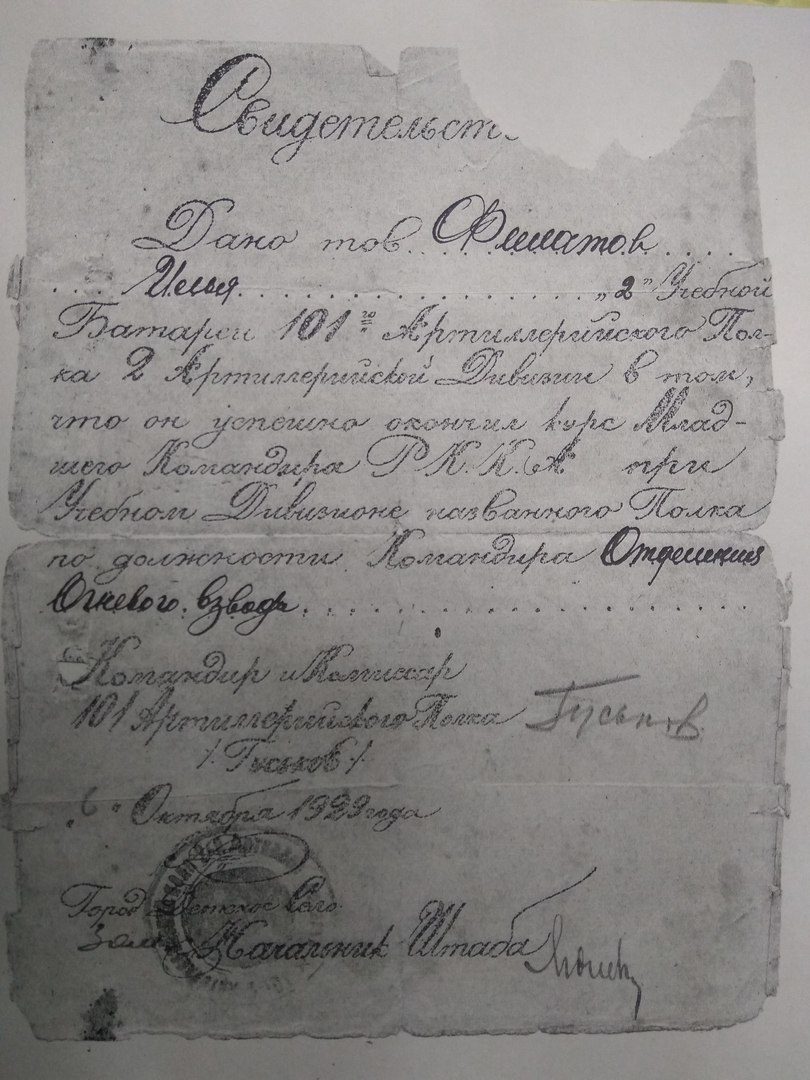 Свидетельст
Дано тов. Филатов
Илья "2" Учебной
Батареи 101го Артиллерийского Пол-
ка 2 Артиллерийской Дивизии в том,
что он успешно окончил курс Млад-
шего Командира Р.К.К.А при
Учебном Дивизионе названного Полка
по должности Командира Отделения
Огневого взвода
Командир и Комиссар
101 Артиллерийского Полка Гуськов
/Гуськов/
"6" Октября 1929 года
Город Детское Село
Зам. Начальник Штаба